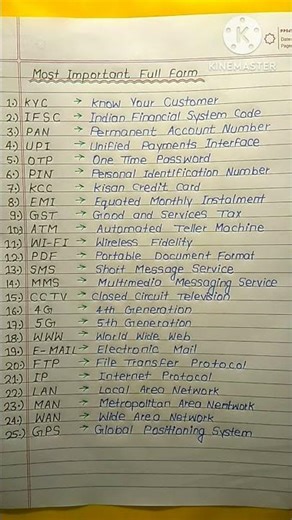 KINEMASTER
Most Important Full Form
1.) KYC → Know Your Customer
2.) IFSC → Indian Financial System Code
3.) PAN → Permanent Account Number
4.) UPI → Unified Payments Interface
5.) OTP → One Time Password
6.) PIN → Personal Identification Number
7.) KCC → Kisan Credit Card
8.) EMI → Equated Monthly Instalment
9.) GST → Good and Services Tax
10.) ATM → Automated Teller Machine
11.) WI-FI → Wireless Fidelity
12.) PDF → Portable Document Format
13.) SMS → Short Message Service
14.) MMS → Multimedia Messaging Service
15.) CCTV → Closed Circuit Television
16.) 4G → 4th Generation
17.) 5G → 5th Generation
18.) WWW → World Wide Web
19.) E-MAIL → Electronic Mail
20.) FTP → File Transfer Protocol
21.) IP → Internet Protocol
22.) LAN → Local Area Network
23.) MAN → Metropolitan Area Nentwork
24.) WAN → Wide Area Network
25.) GPS → Global Positioning System